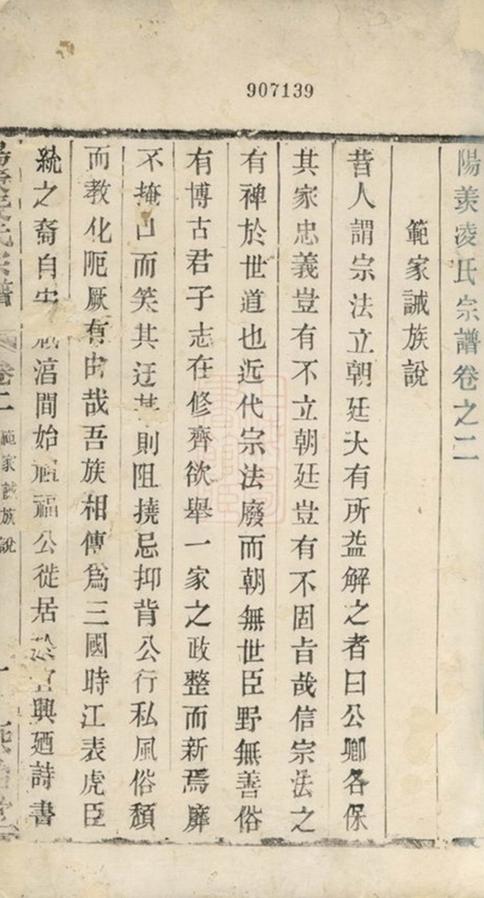 907139
陽羨凌氏宗譜卷之二
範家誡族說
昔人謂宗法立朝廷大有所益解之者曰公卿各保
其家忠義豈有不立朝廷豈有不固旨哉信宗法之
有裨於世道也近代宗法廢而朝無世臣野無善俗
有博古君子志在修齊欲舉一家之政整而新焉靡
不掩口而笑其迂甚則阻撓忌抑背公行私風俗頹
而教化阨厥有由哉吾族相傳為三國時江表虎臣
統之裔自宋 湻間始祖福公徙居於宜興廼詩書
氏宗譜 卷二 範家誡族說